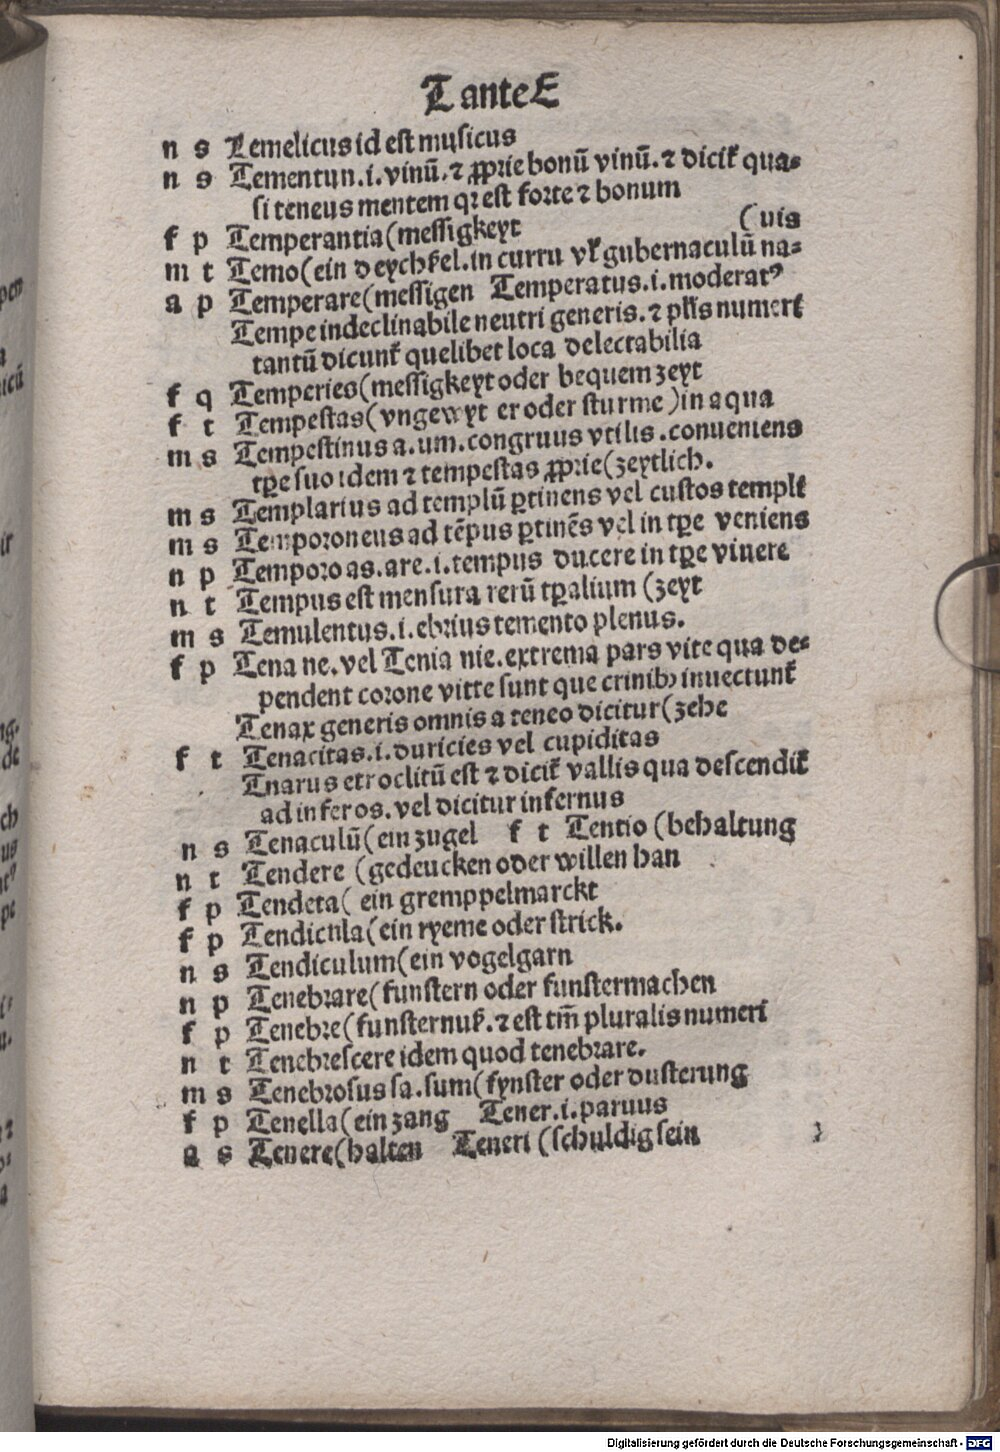 T ante E
n s Temelicus id est musicus
n s Tementun .i. vinū. ⁊ ꝓprie bonū vinū. ⁊ dicit᷑ qua⸗
si teneus mentem qꝛ est forte ⁊ bonum
f p Temperantia (messigkeyt (uis
m t Temo (ein deychsel. in curru vł gubernaculū na⸗
a p Temperare (messigen Temperatus .i. moderatꝰ
Tempe indeclinabile neutri generis. ⁊ pl̄is numeri
tantū dicunt᷑ quelibet loca delectabilia
f q Temperies (messigkeyt oder bequem zeyt
f t Tempestas (vngewyt er oder sturme) in aqua
m s Tempestinus a. um. congruus vtilis. conueniens
tꝑe suo idem ⁊ tempestas ꝓprie (zeytlich.
m s Templarius ad templū ꝑtinens vel custos templi
m s Temporoneus ad tēpus ꝑtinēs vel in tꝑe veniens
n p Temporo as. are .i. tempus ducere in tꝑe viuere
n t Tempus est mensura rerū tꝑalium (zeyt
m s Temulentus .i. ebrius temento plenus.
f p Tena ne. vel Tenia nie. extrema pars vite qua de⸗
pendent corone vitte sunt que crinibꝫ inuectunt᷑
Tenax generis omnis a teneo dicitur (zehe
f t Tenacitas .i. duricies vel cupiditas
Tnarus etroclitū est ⁊ dicit᷑ vallis qua descendit᷑
ad inferos. vel dicitur infernus
n s Tenaculū (ein zugel f t Tentio (behaltung
n t Tendere (gedeucken oder willen han
f p Tendeta (ein gremppelmarckt
f p Tendicula (ein ryeme oder strick.
n s Tendiculum (ein vogelgarn
n p Tenebrare (funstern oder funstermachen
f p Tenebre (funsternuß. ⁊ est tm̄ pluralis numeri
n t Tenebrescere idem quod tenebrare.
m s Tenebrosus sa. sum (fynster oder dusterung
f p Tenella (ein zang Tener .i. paruus
a s Tenere (halten Teneri (schuldig sein
Digitalisierung gefördert durch die Deutsche Forschungsgemeinschaft - DFG